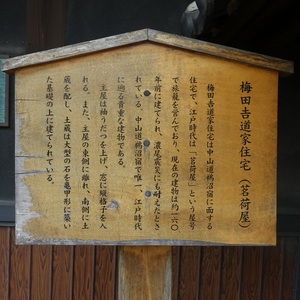 梅田吉道家住宅（茗荷屋）
梅田吉道家住宅は中山道鵜沼宿に面する
住宅で、江戸時代は「茗荷屋」という屋号
で旅籠を営んでおり、現在の建物は約一六〇
年前に建てられ、濃尾震災にも耐えたとさ
れている。中山道鵜沼宿で唯一、江戸時代
に遡る貴重な建物である。
主屋は袖うだつを上げ、窓に縦格子を入
れる。また、主屋の東側に離れ、南側に土
蔵を配し、土蔵は大型の石を亀甲形に築い
た基礎の上に建てられている。